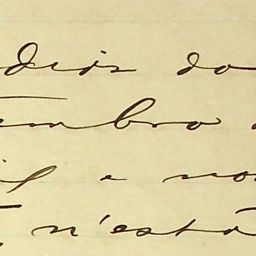 dias do
embro
il e no
n'esta